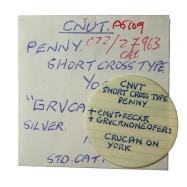 CNUT. A5609
PENNY. C22/27963
SHORT CROSS TYPE
YO
"GRVCA
SILVER.
STD. CAT
CNUT
SHORT CROSS TYPE
PENNY
+CNUT·RECX
+GRVCANONEOFERS
CRUCAN ON
YORK